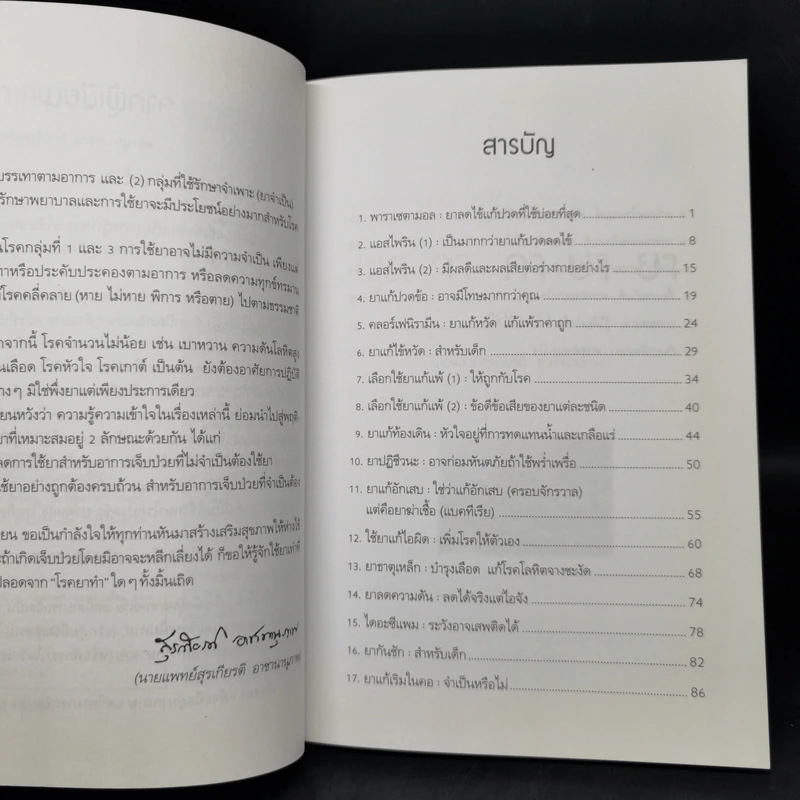 บรรเทาตามอาการ และ (2) กลุ่มที่ใช้รักษาจำเพาะ (ยาจำเป็น)
รักษาพยาบาลและการใช้ยาจะมีประโยชน์อย่างมากสำหรับโรค
นโรคกลุ่มที่ 1 และ 3 การใช้ยาอาจไม่มีความจำเป็น เพียงแต่
าหรือประคับประคองตามอาการ หรือลดความทุกข์ทรมาน
โรคคลี่คลาย (หาย ไม่หาย พิการ หรือตาย) ไปตามธรรมชาติ
กจากนี้ โรคจำนวนไม่น้อย เช่น เบาหวาน ความดันโลหิตสูง
นเลือด โรคหัวใจ โรคเกาต์ เป็นต้น ยังต้องอาศัยการปฏิบัติ
างๆ มิใช่พึ่งยาแต่เพียงประการเดียว
ยนหวังว่า ความรู้ความเข้าใจในเรื่องเหล่านี้ ย่อมนำไปสู่พฤติ-
ยาที่เหมาะสมอยู่ 2 ลักษณะด้วยกัน ได้แก่
ลดการใช้ยาสำหรับอาการเจ็บป่วยที่ไม่จำเป็นต้องใช้ยา
ใช้ยาอย่างถูกต้องครบถ้วน สำหรับอาการเจ็บป่วยที่จำเป็นต้อง
ยน ขอเป็นกำลังใจให้ทุกท่านหันมาสร้างเสริมสุขภาพให้ห่างไกล
ะถ้าเกิดเจ็บป่วยโดยมิอาจจะหลีกเลี่ยงได้ ก็ขอให้รู้จักใช้ยาเท่าที่
ปลอดจาก "โรคยาทำ" ใดๆ ทั้งมิ้นเถิด
(นายแพทย์สุรเกียรติ อาชานานุภาพ)
สารบัญ
1. พาราเซตามอล : ยาลดไข้แก้ปวดที่ใช้บ่อยที่สุด 1
2. แอสไพริน (1) : เป็นมากกว่ายาแก้ปวดลดไข้ 8
3. แอสไพริน (2) : มีผลดีและผลเสียต่อร่างกายอย่างไร 15
4. ยาแก้ปวดข้อ : อาจมีโทษมากกว่าคุณ 19
5. คลอร์เฟนิรามีน : ยาแก้หวัด แก้แพ้ราคาถูก 24
6. ยาแก้ไข้หวัด : สำหรับเด็ก 29
7. เลือกใช้ยาแก้แพ้ (1) : ให้ถูกกับโรค 34
8. เลือกใช้ยาแก้แพ้ (2) : ข้อดีข้อเสียของยาแต่ละชนิด 40
9. ยาแก้ท้องเดิน : หัวใจอยู่ที่การทดแทนน้ำและเกลือแร่ 44
10. ยาปฏิชีวนะ : อาจก่อมหันตภัยถ้าใช้พร่ำเพรื่อ 50
11. ยาแก้อักเสบ : ใช่ว่าแก้อักเสบ (ครอบจักรวาล)
แต่คือยาฆ่าเชื้อ (แบคทีเรีย) 55
12. ใช้ยาแก้ไอผิด : เพิ่มโรคให้ตัวเอง 60
13. ยาธาตุเหล็ก : บำรุงเลือด แก้โรคโลหิตจางชะงัด 68
14. ยาลดความดัน : ลดได้จริงแต่ไอจัง 74
15. ไดอะซีแพม : ระวังอาจเสพติดได้ 78
16. ยากันชัก : สำหรับเด็ก 82
17. ยาแก้เริมในคอ : จำเป็นหรือไม่ 86